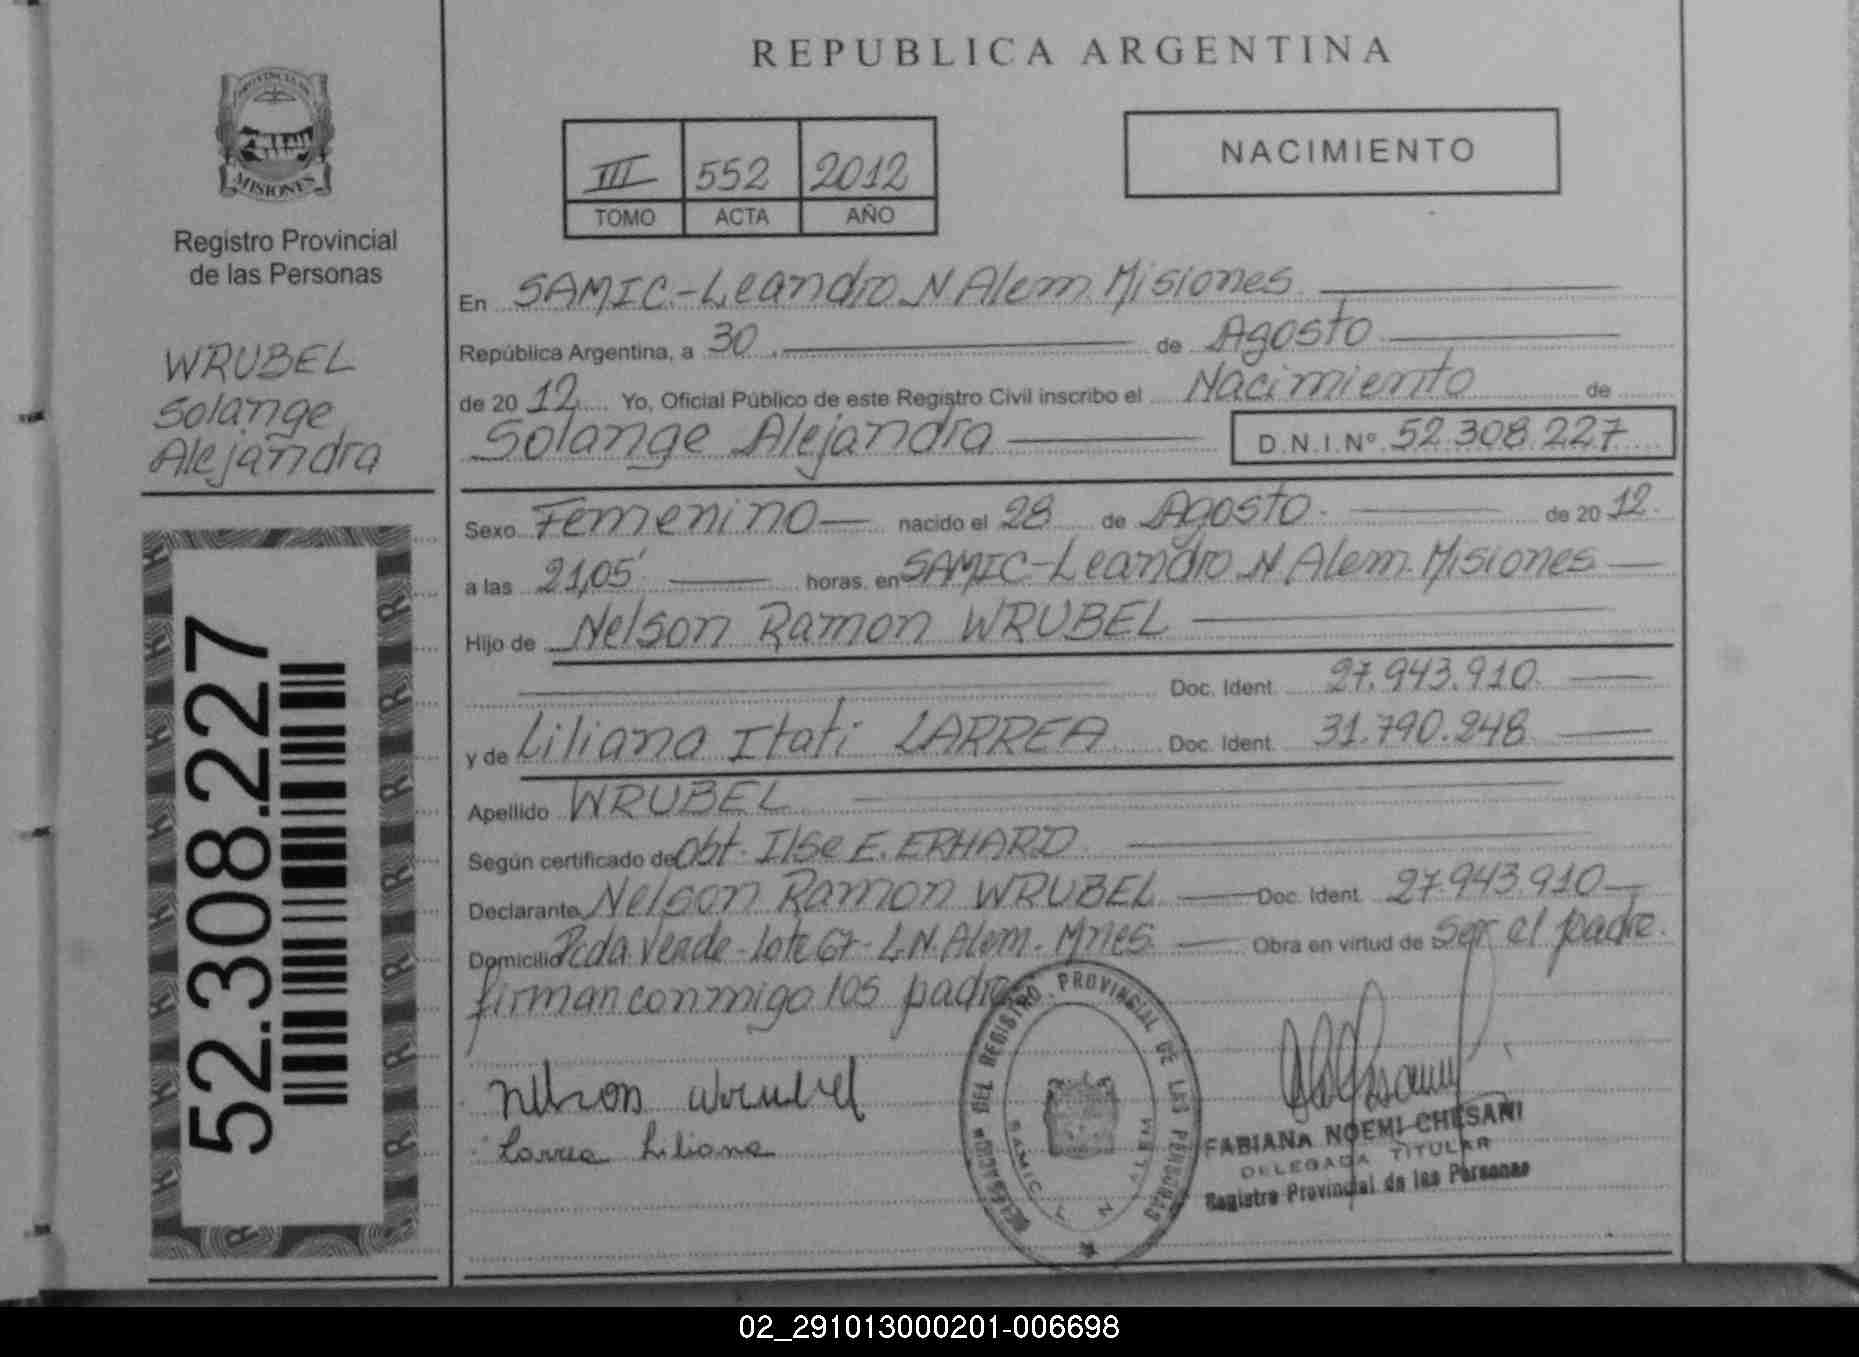 REPUBLICA ARGENTINA
PROVINCIA DE
MISIONES
Registro Provincial
de las Personas
WRUBEL
Solange
Alejandra
52.308.227
III 552 2012
TOMO ACTA AÑO
NACIMIENTO
En SAMIC-Leandro N Alem Misiones
República Argentina, a 30 de Agosto
de 20 12 Yo, Oficial Público de este Registro Civil inscribo el Nacimiento de
Solange Alejandra D.N.I.Nº 52.308.227
Sexo Femenino nacido el 28 de Agosto de 20 12
a las 21,05' horas, en SAMIC-Leandro N Alem Misiones
Hijo de Nelson Ramon WRUBEL
Doc. Ident. 27.943.910
y de Liliana Itati LARREA Doc. Ident. 31.790.248
Apellido WRUBEL
Según certificado de Obt. Ilse E. ERHARD
Declarante Nelson Ramon WRUBEL Doc. Ident. 27.943.910
Domicilio Pcda Verde - Lote 67 - L.N. Alem. Mnes. Obra en virtud de ser el padre.
firman conmigo los padres
Nelson Wrubel
Larrea Liliana
DELEGACION DEL REGISTRO PROVINCIAL DE LAS PERSONAS
SAMIC L N ALEM
FABIANA NOEMI CHESANI
DELEGADA TITULAR
Registro Provincial de las Personas
02_291013000201-006698